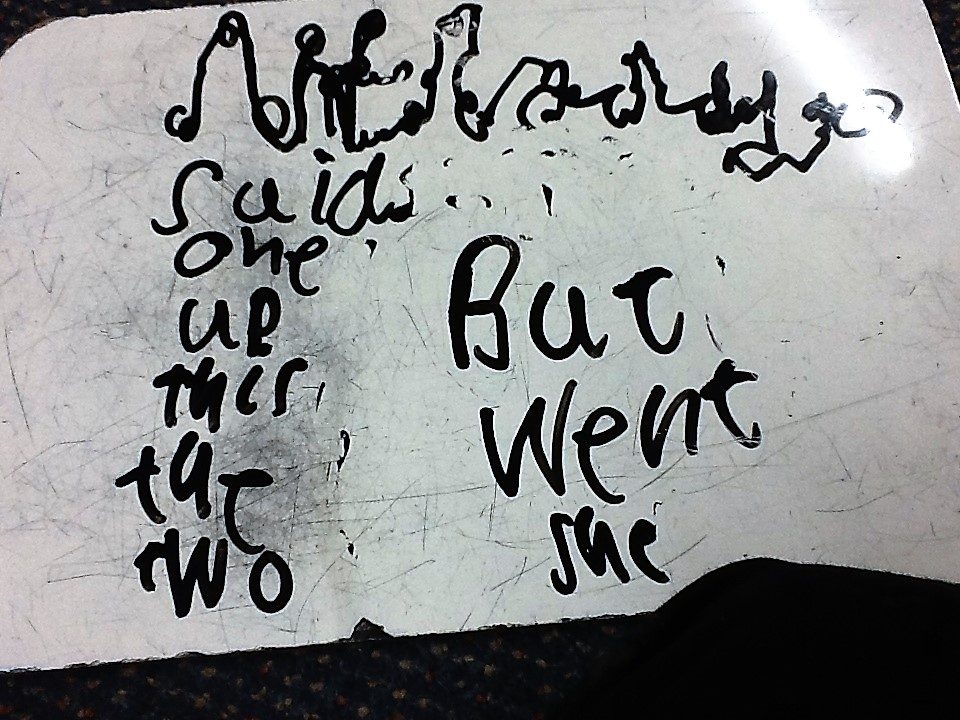 said
one
up
this
the
two
But
Went
she